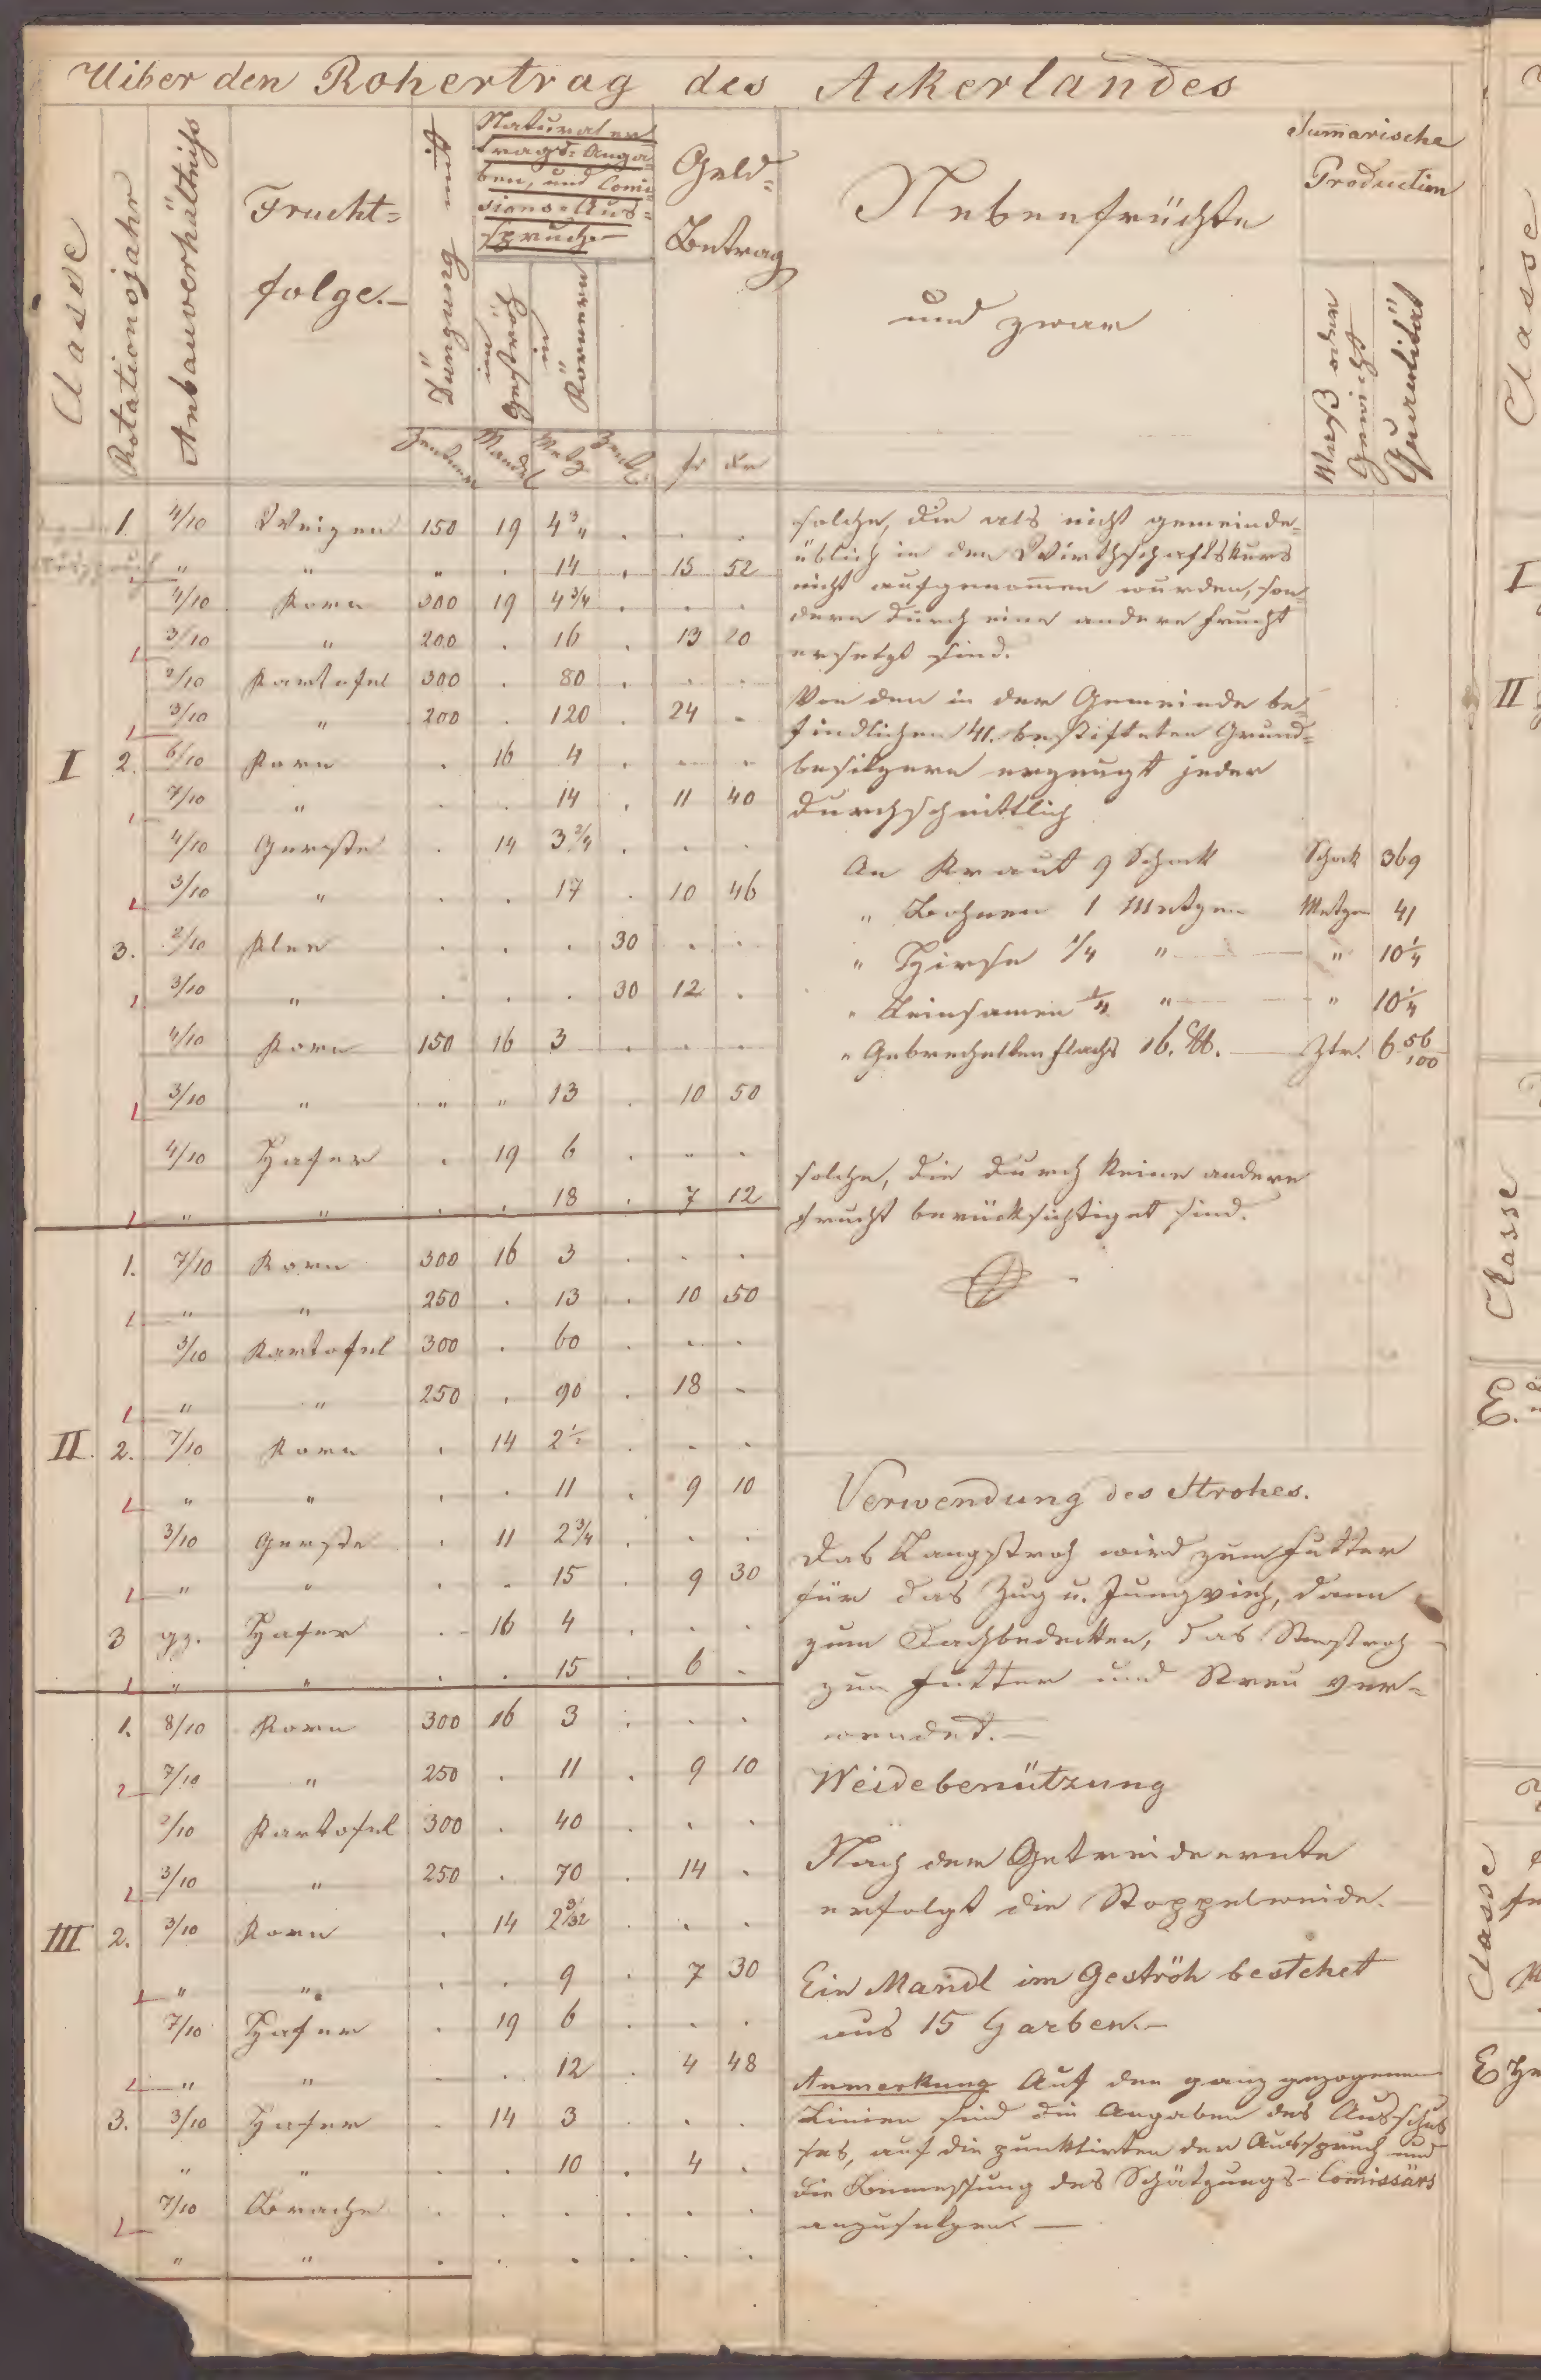 Uiber den Rohertrag des Ackerlandes
Classe
Rotationsjahr
Anbauverhältniss
Frucht=
folge.—
Düngung
Zentner
Naturaler
trags-Anga
ben, und Comis
sions-Aus=
spruch
im Geströh
in Körnern
Mandel
Metz
Zentr.
Geld=
Betrag
fr kr
Nebenfrüchte
und zwar
Sum̄arische
Production
Maß oder
Gewicht
Quantität
I
1. 4/10 Weizen 150 19 4 3/"
" " " . 14 . 15 52
4/10 Korn 300 19 4 3/4 . . .
3/10 " 200 . 16 . 13 20
2/10 Kartofel 300 . 80 . . .
3/10 " 200 . 120 . 24 .
2. 6/10 Korn . 16 4 . . .
7/10 " . . 14 . 11 40
4/10 Gerste . 14 3 2/4 . . .
3/10 " . . 17 . 10 46
3. 2/10 Klee . . . 30 . .
3/10 " . . . 30 12 .
4/10 Korn 150 16 3 . . .
3/10 " " " 13 . 10 50
4/10 Hafer . 19 6 . " .
" " . . 18 . 7 12
II.
1. 7/10 Korn 300 16 3 . . .
" " 250 . 13 . 10 50
3/10 Kartofel 300 . 60 . . .
" " 250 . 90 . 18 .
2. 7/10 Korn . 14 2 1/2 . . .
" " . . 11 . 9 10
3/10 Gerste . 11 2 3/4 . . .
" " . . 15 . 9 30
3 gz. Hafer . 16 4 . . .
" " . . 15 . 6 .
III
1. 8/10 Korn 300 16 3 . . .
7/10 " 250 . 11 . 9 10
2/10 Kartofel 300 . 40 . . .
3/10 " 250 . 70 . 14 .
2. 3/10 Korn . 14 2 3/32 . . .
" " . . 9 . 7 30
7/10 Hafer . 19 6 . . .
" " . . 12 . 4 48
3. 3/10 Hafer . 14 3 . . .
" " . . 10 . 4 .
7/10 Brache . . . . . .
" " . . . . . .
solche, die als nicht gemeinde=
üblich in den Wirthschaftskurs
nicht aufgenom̄en wurden, son=
dern durch eine andere Frucht
ersetzt sind.
Von den in der Gemeinde be=
findlichen 41. bestifteten Grund=
besitzern erzeugt jeder
durchschnittlich
An Kraut 9 Schock Schock 369
" Bohnen 1 Metzen Metzen 41
" Hirse 1/4 " " 10 1/4
" Leinsamen 1/4 " " 10 1/4
" Gebrechelten Flachs 16. ℔. Ztr. 6 56/100
solche, die durch keine andere
Frucht berücksichtiget sind.
Verwendung des Strohes.
Das Langstroh wird zum Futter
für das Zug u. Jungvieh, dann
zum Dachbedecken, das
zum Futter und Streu ver=
wendet.—
Weidebenützung
Nach der Getreideernte
erfolgt die Stoppelweide.
Ein Mandl im Geströh bestehet
aus 15 Garben.—
Anmerkung Auf den ganz gezogenen
Linien sind die Angaben des Ausschus
ses, auf die punktirten der Ausspruch und
die Bemessung des Schätzungs-Com̄issärs
anzusetzen.—
Classe
I
II
Classe
Classe